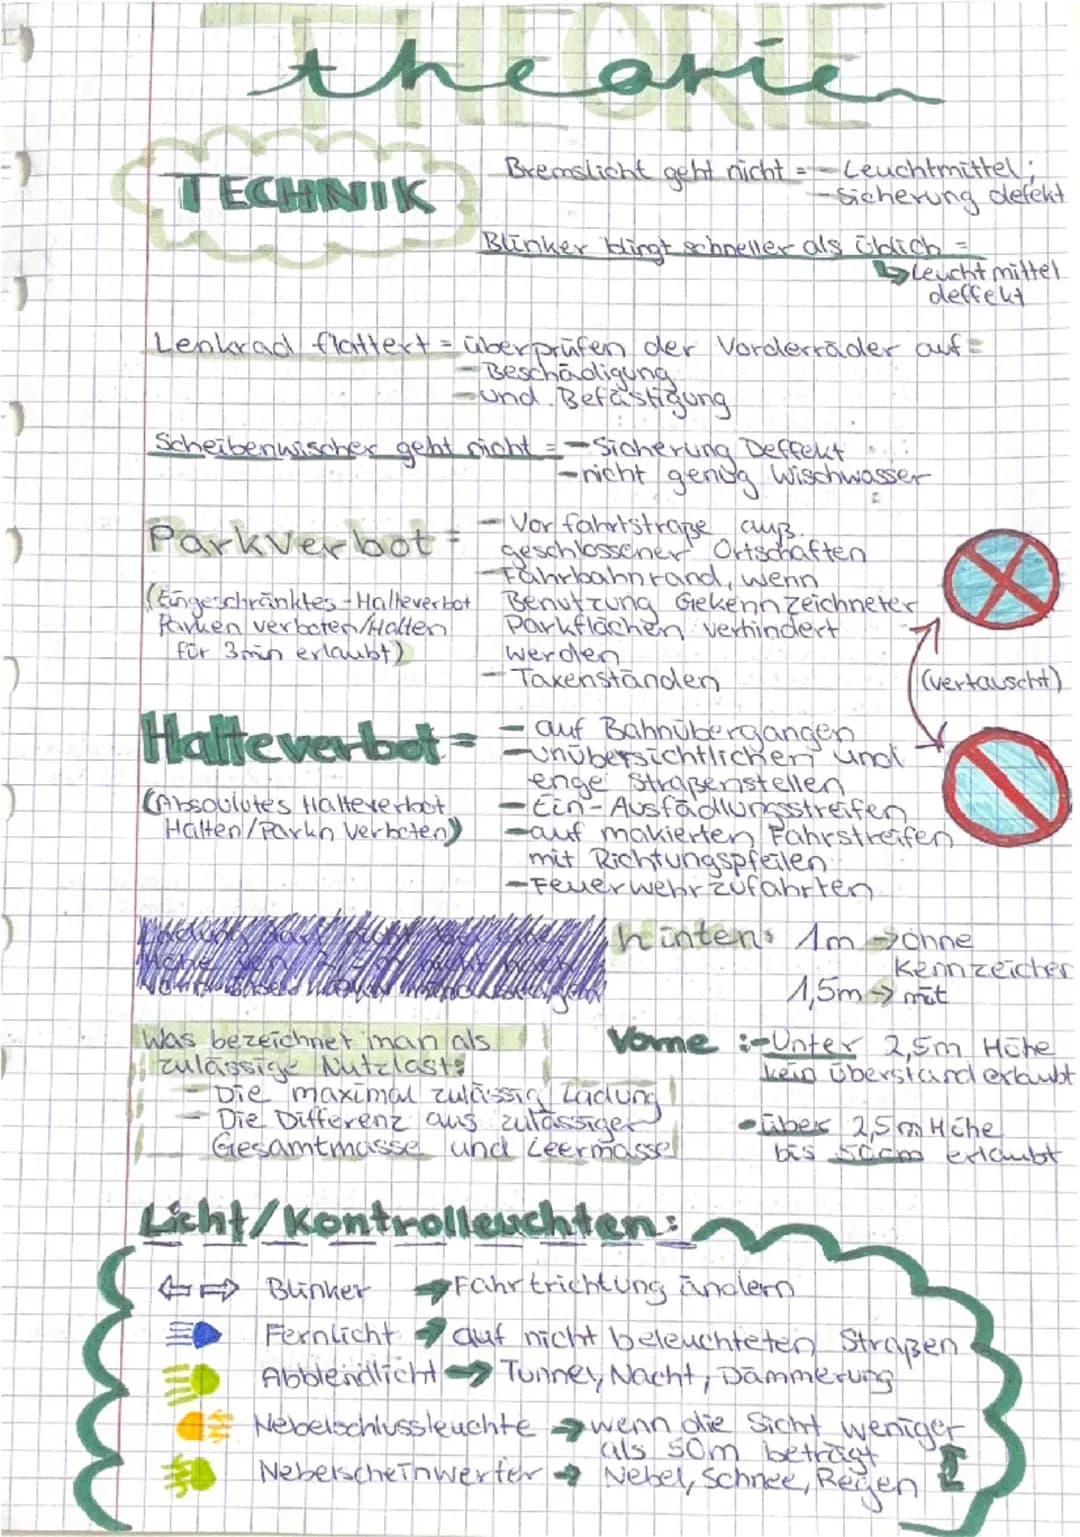 THEORIE
theorie
TECHNIK
Bremslicht geht nicht = - Leuchtmittel;
- Sicherung defekt
Blinker blingt schneller als üblich =
↳ Leuchtmittel
deffekt
Lenkrad flattert = überprüfen der Vorderräder auf =
- Beschädigung
- und Befästigung
Scheibenwischer geht nicht = - Sicherung Deffekt
- nicht genüg Wischwasser
Parkverbot =
- Vorfahrtstraße auß.
geschlossener Ortschaften
- Fahrbahnrand, wenn
Benutzung Gekennzeichneter
Parkflächen verhindert
werden
- Taxenständen
(Eingeschränktes-Halteverbot
Parken verboten/Halten
für 3min erlaubt)
(vertauscht)
Halteverbot =
- auf Bahnübergangen
- unübersichtlichen und
enge Straßenstellen
- Ein- Ausfädlungsstreifen
- auf makierten Fahrstreifen
mit Richtungspfeilen
- Feuerwehrzufahrten
(Absoulutes Halteverbot
Halten/Parkn Verboten)
hinten: 1m → ohne
Kennzeicher
1,5m → mit
Was bezeichnet man als
zulässige Nutzlast:
- Die maximal zulässig Ladung
- Die Differenz aus zulässiger
Gesamtmasse und Leermasse
Vorne :- Unter 2,5m Höhe
kein überstand erlaubt
- über 2,5m Höhe
bis 50cm erlaubt
Licht/Kontrolleuchten:
Blinker → Fahrtrichtung ändern
Fernlicht → auf nicht beleuchteten Straßen
Abblendlicht → Tunnel, Nacht, Dämmerung
Nebelschlussleuchte → wenn die Sicht weniger
als 50m beträgt
Nebelscheinwerfer → Nebel, Schnee, Regen